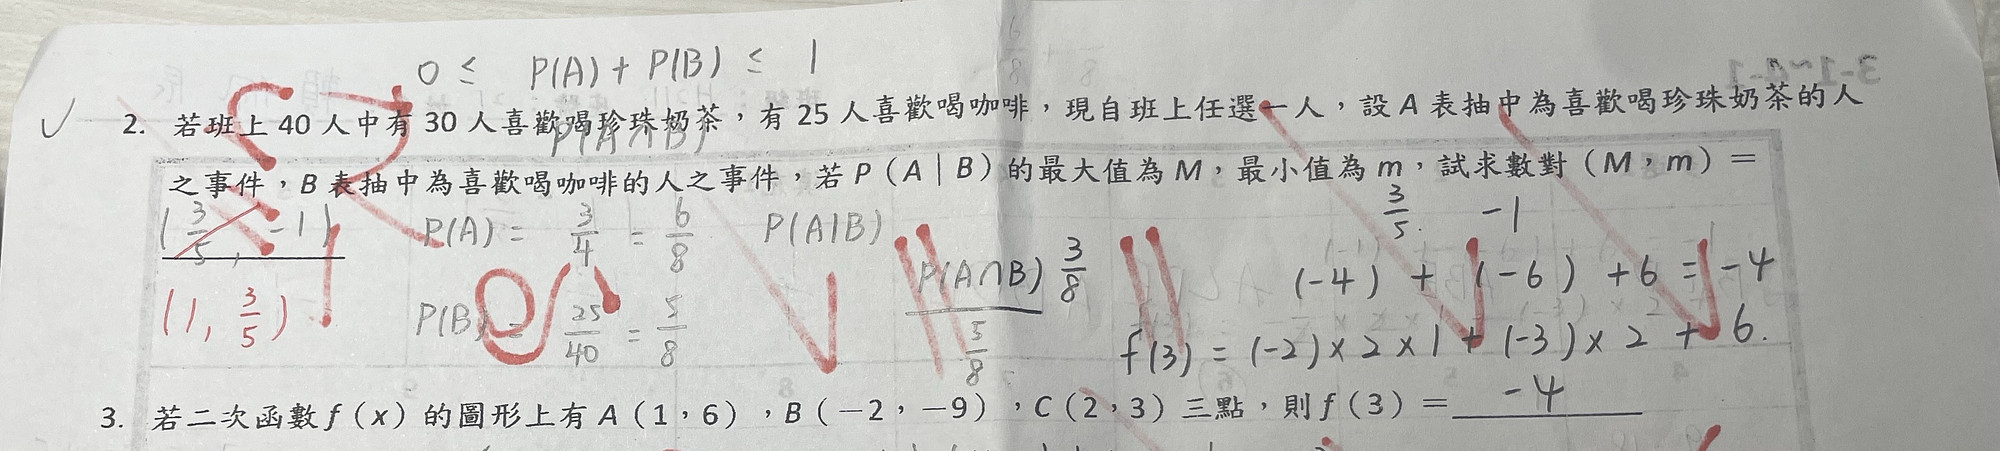 0 ≤ P(A) + P(B) ≤ 1
3-1~4-1
✓ 2. 若班上 40 人中有 30 人喜歡喝珍珠奶茶,有 25 人喜歡喝咖啡,現自班上任選一人,設 A 表抽中為喜歡喝珍珠奶茶的人
P(A∩B)
之事件,B 表抽中為喜歡喝咖啡的人之事件,若 P(A|B)的最大值為 M,最小值為 m,試求數對(M,m)=
(3/5, -1) P(A) = 3/4 = 6/8 P(A|B) 3/5. -1
P(A∩B) 3/8 (-4) + (-6) + 6 = -4
(1, 3/5) P(B) = 25/40 = 5/8 5/8 f(3) = (-2)×2×1 + (-3)×2 + 6.
3. 若二次函數 f(x)的圖形上有 A(1,6),B(-2,-9),C(2,3)三點,則 f(3)= -4